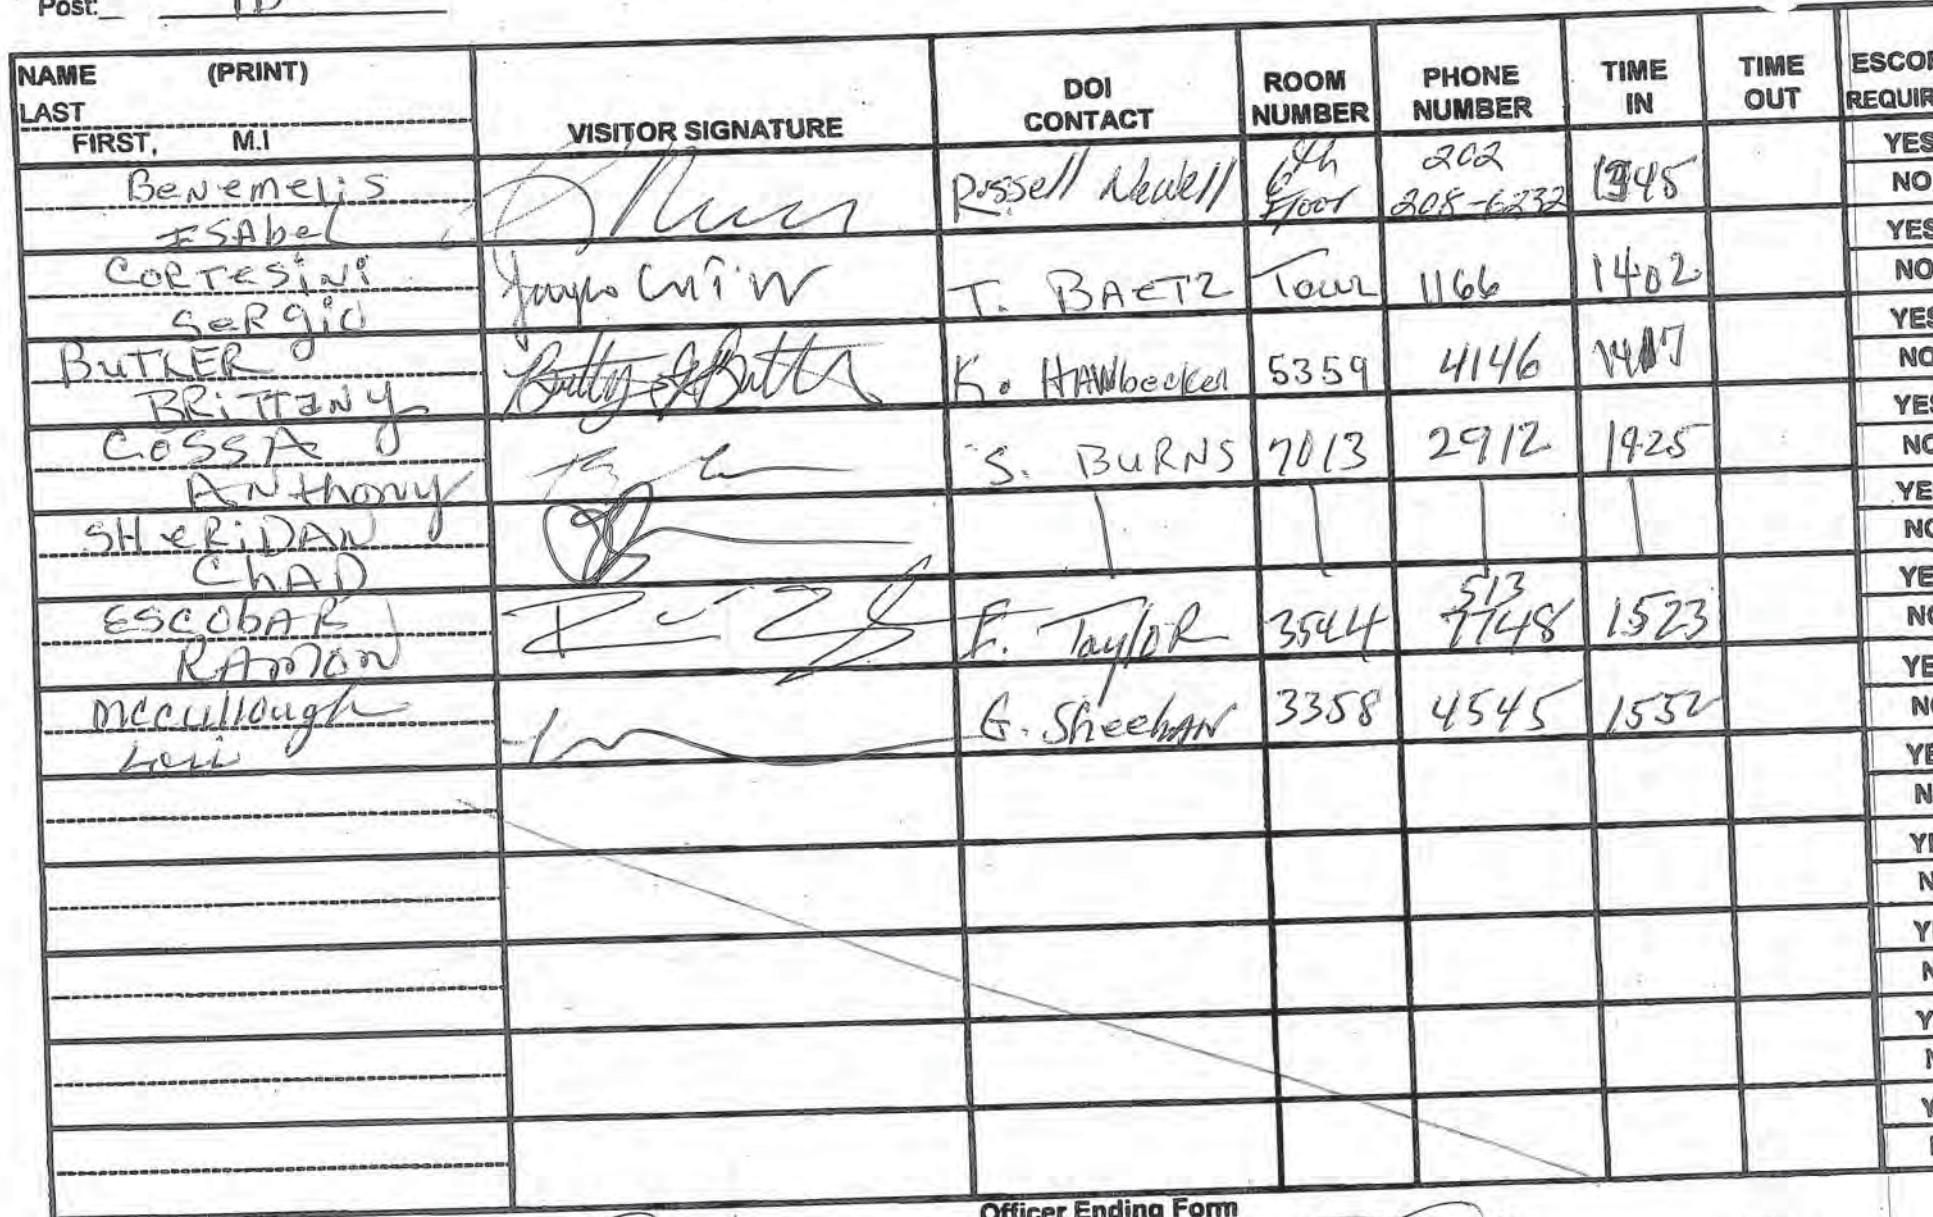 Post:
NAME (PRINT)
LAST
FIRST, M.I
VISITOR SIGNATURE
DOI
CONTACT
ROOM
NUMBER
PHONE
NUMBER
TIME
IN
TIME
OUT
YES
NO
Benemelis
ISAbel
Russell Newell
6th
Floor
202
208-6232
1345
YES
NO
CORTESiNi
SeRgio
T. BAETZ
Tour
1166
1402
YES
NO
BUTLER
BRiTTANY
K. HAWbecker
5359
4146
YES
NO
COSSA
ANthony
S. BURNS
7013
2912
1425
SHeRiDAN
ChAD
ESCObAR
RAMON
E. TaylOR
3544
513
7748
1523
McCullough
Lori
G. SheehAN
3358
4545
1552
Officer Ending Form